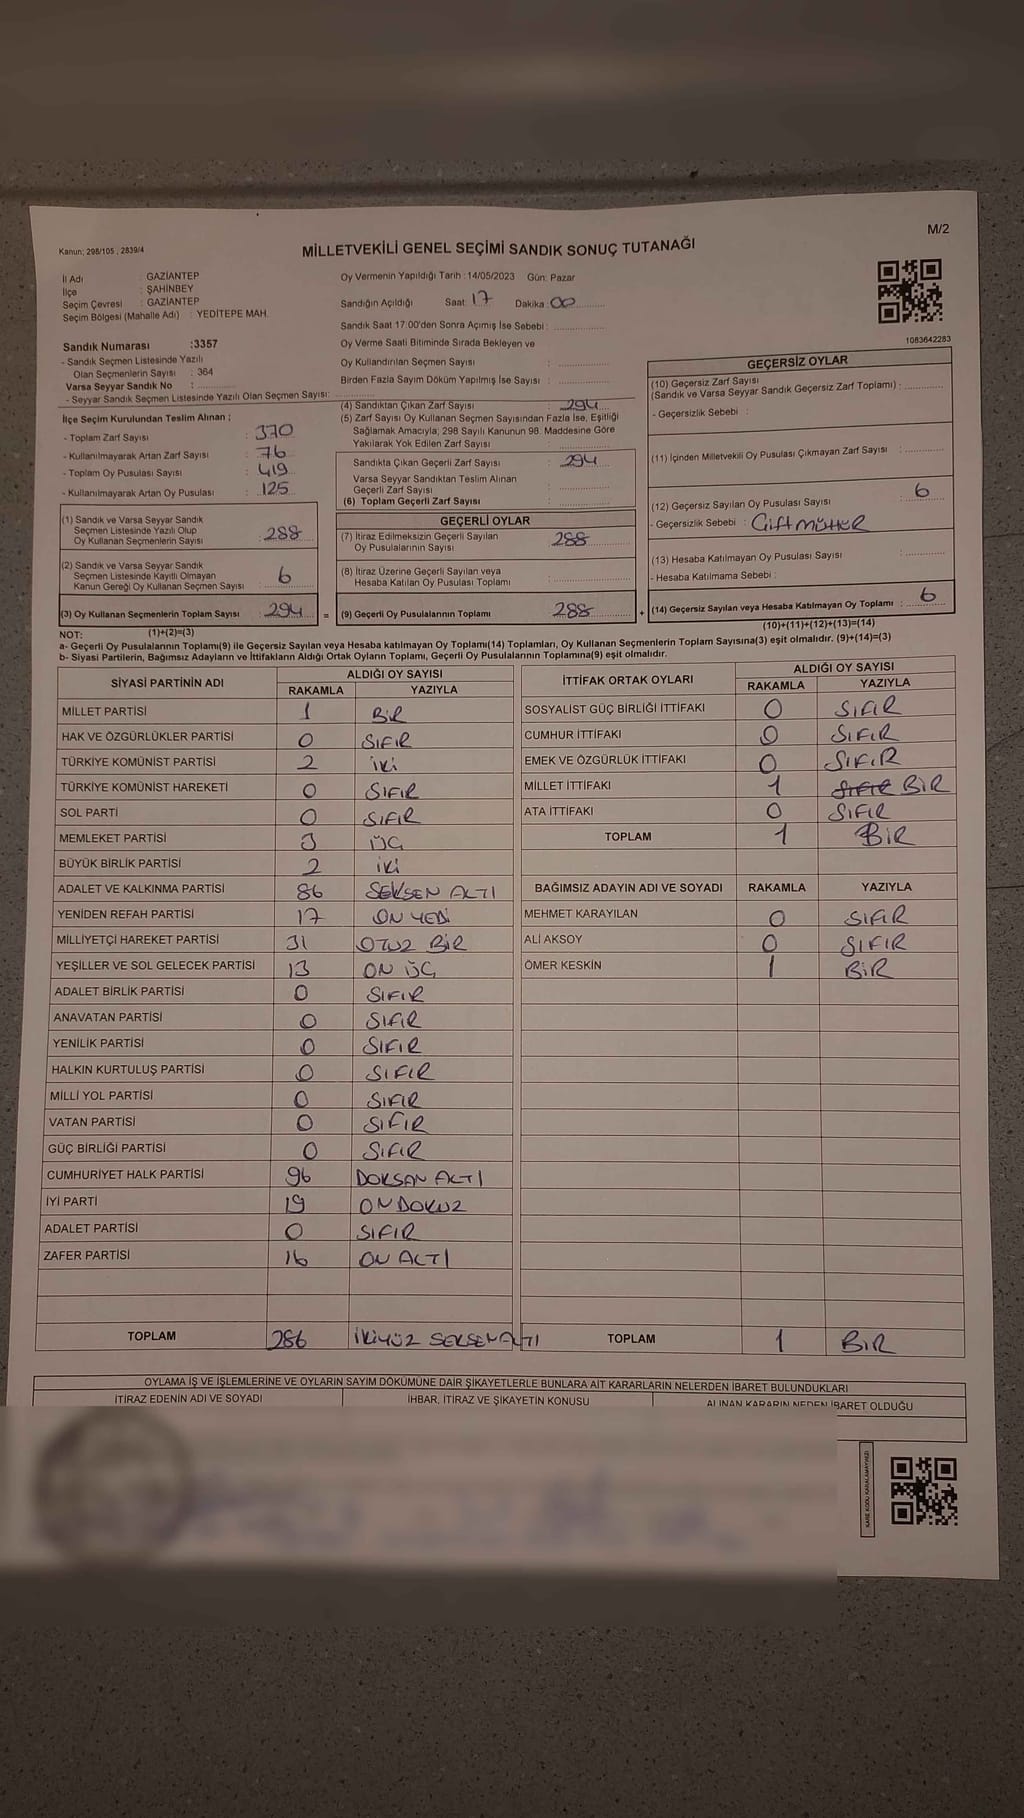 M/2
Kanun; 298/105 , 2839/4
MİLLETVEKİLİ GENEL SEÇİMİ SANDIK SONUÇ TUTANAĞI
İl Adı : GAZİANTEP
İlçe : ŞAHİNBEY
Seçim Çevresi : GAZİANTEP
Seçim Bölgesi (Mahalle Adı) : YEDİTEPE MAH.
Oy Vermenin Yapıldığı Tarih : 14/05/2023 Gün: Pazar
Sandığın Açıldığı Saat: 17 Dakika 00
Sandık Saat 17:00'den Sonra Açılmış İse Sebebi :
Oy Verme Saati Bitiminde Sırada Bekleyen ve
Oy Kullandırılan Seçmen Sayısı :
Birden Fazla Sayım Döküm Yapılmış İse Sayısı :
1083642283
Sandık Numarası :3357
- Sandık Seçmen Listesinde Yazılı
Olan Seçmenlerin Sayısı : 364
Varsa Seyyar Sandık No :
- Seyyar Sandık Seçmen Listesinde Yazılı Olan Seçmen Sayısı:
İlçe Seçim Kurulundan Teslim Alınan ;
- Toplam Zarf Sayısı : 370
- Kullanılmayarak Artan Zarf Sayısı : 76
- Toplam Oy Pusulası Sayısı : 419
- Kullanılmayarak Artan Oy Pusulası : 125
(1) Sandık ve Varsa Seyyar Sandık
Seçmen Listesinde Yazılı Olup
Oy Kullanan Seçmenlerin Sayısı : 288
(2) Sandık ve Varsa Seyyar Sandık
Seçmen Listesinde Kayıtlı Olmayan
Kanun Gereği Oy Kullanan Seçmen Sayısı : 6
(3) Oy Kullanan Seçmenlerin Toplam Sayısı : 294 =
(1)+(2)=(3)
(4) Sandıktan Çıkan Zarf Sayısı : 294
(5) Zarf Sayısı Oy Kullanan Seçmen Sayısından Fazla İse, Eşitliği
Sağlamak Amacıyla; 298 Sayılı Kanunun 98. Maddesine Göre
Yakılarak Yok Edilen Zarf Sayısı :
Sandıkta Çıkan Geçerli Zarf Sayısı : 294
Varsa Seyyar Sandıktan Teslim Alınan
Geçerli Zarf Sayısı :
(6) Toplam Geçerli Zarf Sayısı :
GEÇERLİ OYLAR
(7) İtiraz Edilmeksizin Geçerli Sayılan
Oy Pusulalarının Sayısı : 288
(8) İtiraz Üzerine Geçerli Sayılan veya
Hesaba Katılan Oy Pusulası Toplamı :
(9) Geçerli Oy Pusulalarının Toplamı : 288 +
GEÇERSİZ OYLAR
(10) Geçersiz Zarf Sayısı
(Sandık ve Varsa Seyyar Sandık Geçersiz Zarf Toplamı) :
- Geçersizlik Sebebi :
(11) İçinden Milletvekili Oy Pusulası Çıkmayan Zarf Sayısı :
(12) Geçersiz Sayılan Oy Pusulası Sayısı : 6
- Geçersizlik Sebebi : Çift MÜHÜR
(13) Hesaba Katılmayan Oy Pusulası Sayısı :
- Hesaba Katılmama Sebebi :
(14) Geçersiz Sayılan veya Hesaba Katılmayan Oy Toplamı : 6
(10)+(11)+(12)+(13)=(14)
NOT:
a- Geçerli Oy Pusulalarının Toplamı(9) ile Geçersiz Sayılan veya Hesaba katılmayan Oy Toplamı(14) Toplamları, Oy Kullanan Seçmenlerin Toplam Sayısına(3) eşit olmalıdır. (9)+(14)=(3)
b- Siyasi Partilerin, Bağımsız Adayların ve İttifakların Aldığı Ortak Oyların Toplamı, Geçerli Oy Pusulalarının Toplamına(9) eşit olmalıdır.
SİYASİ PARTİNİN ADI ALDIĞI OY SAYISI
RAKAMLA YAZIYLA
MİLLET PARTİSİ 1 BİR
HAK VE ÖZGÜRLÜKLER PARTİSİ 0 SIFIR
TÜRKİYE KOMÜNİST PARTİSİ 2 İKİ
TÜRKİYE KOMÜNİST HAREKETİ 0 SIFIR
SOL PARTİ 0 SIFIR
MEMLEKET PARTİSİ 3 ÜÇ
BÜYÜK BİRLİK PARTİSİ 2 İKİ
ADALET VE KALKINMA PARTİSİ 86 SEKSEN ALTI
YENİDEN REFAH PARTİSİ 17 ON YEDİ
MİLLİYETÇİ HAREKET PARTİSİ 31 OTUZ BİR
YEŞİLLER VE SOL GELECEK PARTİSİ 13 ON ÜÇ
ADALET BİRLİK PARTİSİ 0 SIFIR
ANAVATAN PARTİSİ 0 SIFIR
YENİLİK PARTİSİ 0 SIFIR
HALKIN KURTULUŞ PARTİSİ 0 SIFIR
MİLLİ YOL PARTİSİ 0 SIFIR
VATAN PARTİSİ 0 SIFIR
GÜÇ BİRLİĞİ PARTİSİ 0 SIFIR
CUMHURİYET HALK PARTİSİ 96 DOKSAN ALTI
İYİ PARTİ 19 ON DOKUZ
ADALET PARTİSİ 0 SIFIR
ZAFER PARTİSİ 16 ON ALTI
TOPLAM 286 İKİYÜZ SEKSEN ALTI
İTTİFAK ORTAK OYLARI ALDIĞI OY SAYISI
RAKAMLA YAZIYLA
SOSYALİST GÜÇ BİRLİĞİ İTTİFAKI 0 SIFIR
CUMHUR İTTİFAKI 0 SIFIR
EMEK VE ÖZGÜRLÜK İTTİFAKI 0 SIFIR
MİLLET İTTİFAKI 1 SIFIR BİR
ATA İTTİFAKI 0 SIFIR
TOPLAM 1 BİR
BAĞIMSIZ ADAYIN ADI VE SOYADI RAKAMLA YAZIYLA
MEHMET KARAYILAN 0 SIFIR
ALİ AKSOY 0 SIFIR
ÖMER KESKİN 1 BİR
TOPLAM 1 BİR
OYLAMA İŞ VE İŞLEMLERİNE VE OYLARIN SAYIM DÖKÜMÜNE DAİR ŞİKAYETLERLE BUNLARA AİT KARARLARIN NELERDEN İBARET BULUNDUKLARI
İTİRAZ EDENİN ADI VE SOYADI İHBAR, İTİRAZ VE ŞİKAYETİN KONUSU ALINAN KARARIN NEDEN İBARET OLDUĞU
KARE KODU KARALAMAYINIZ!